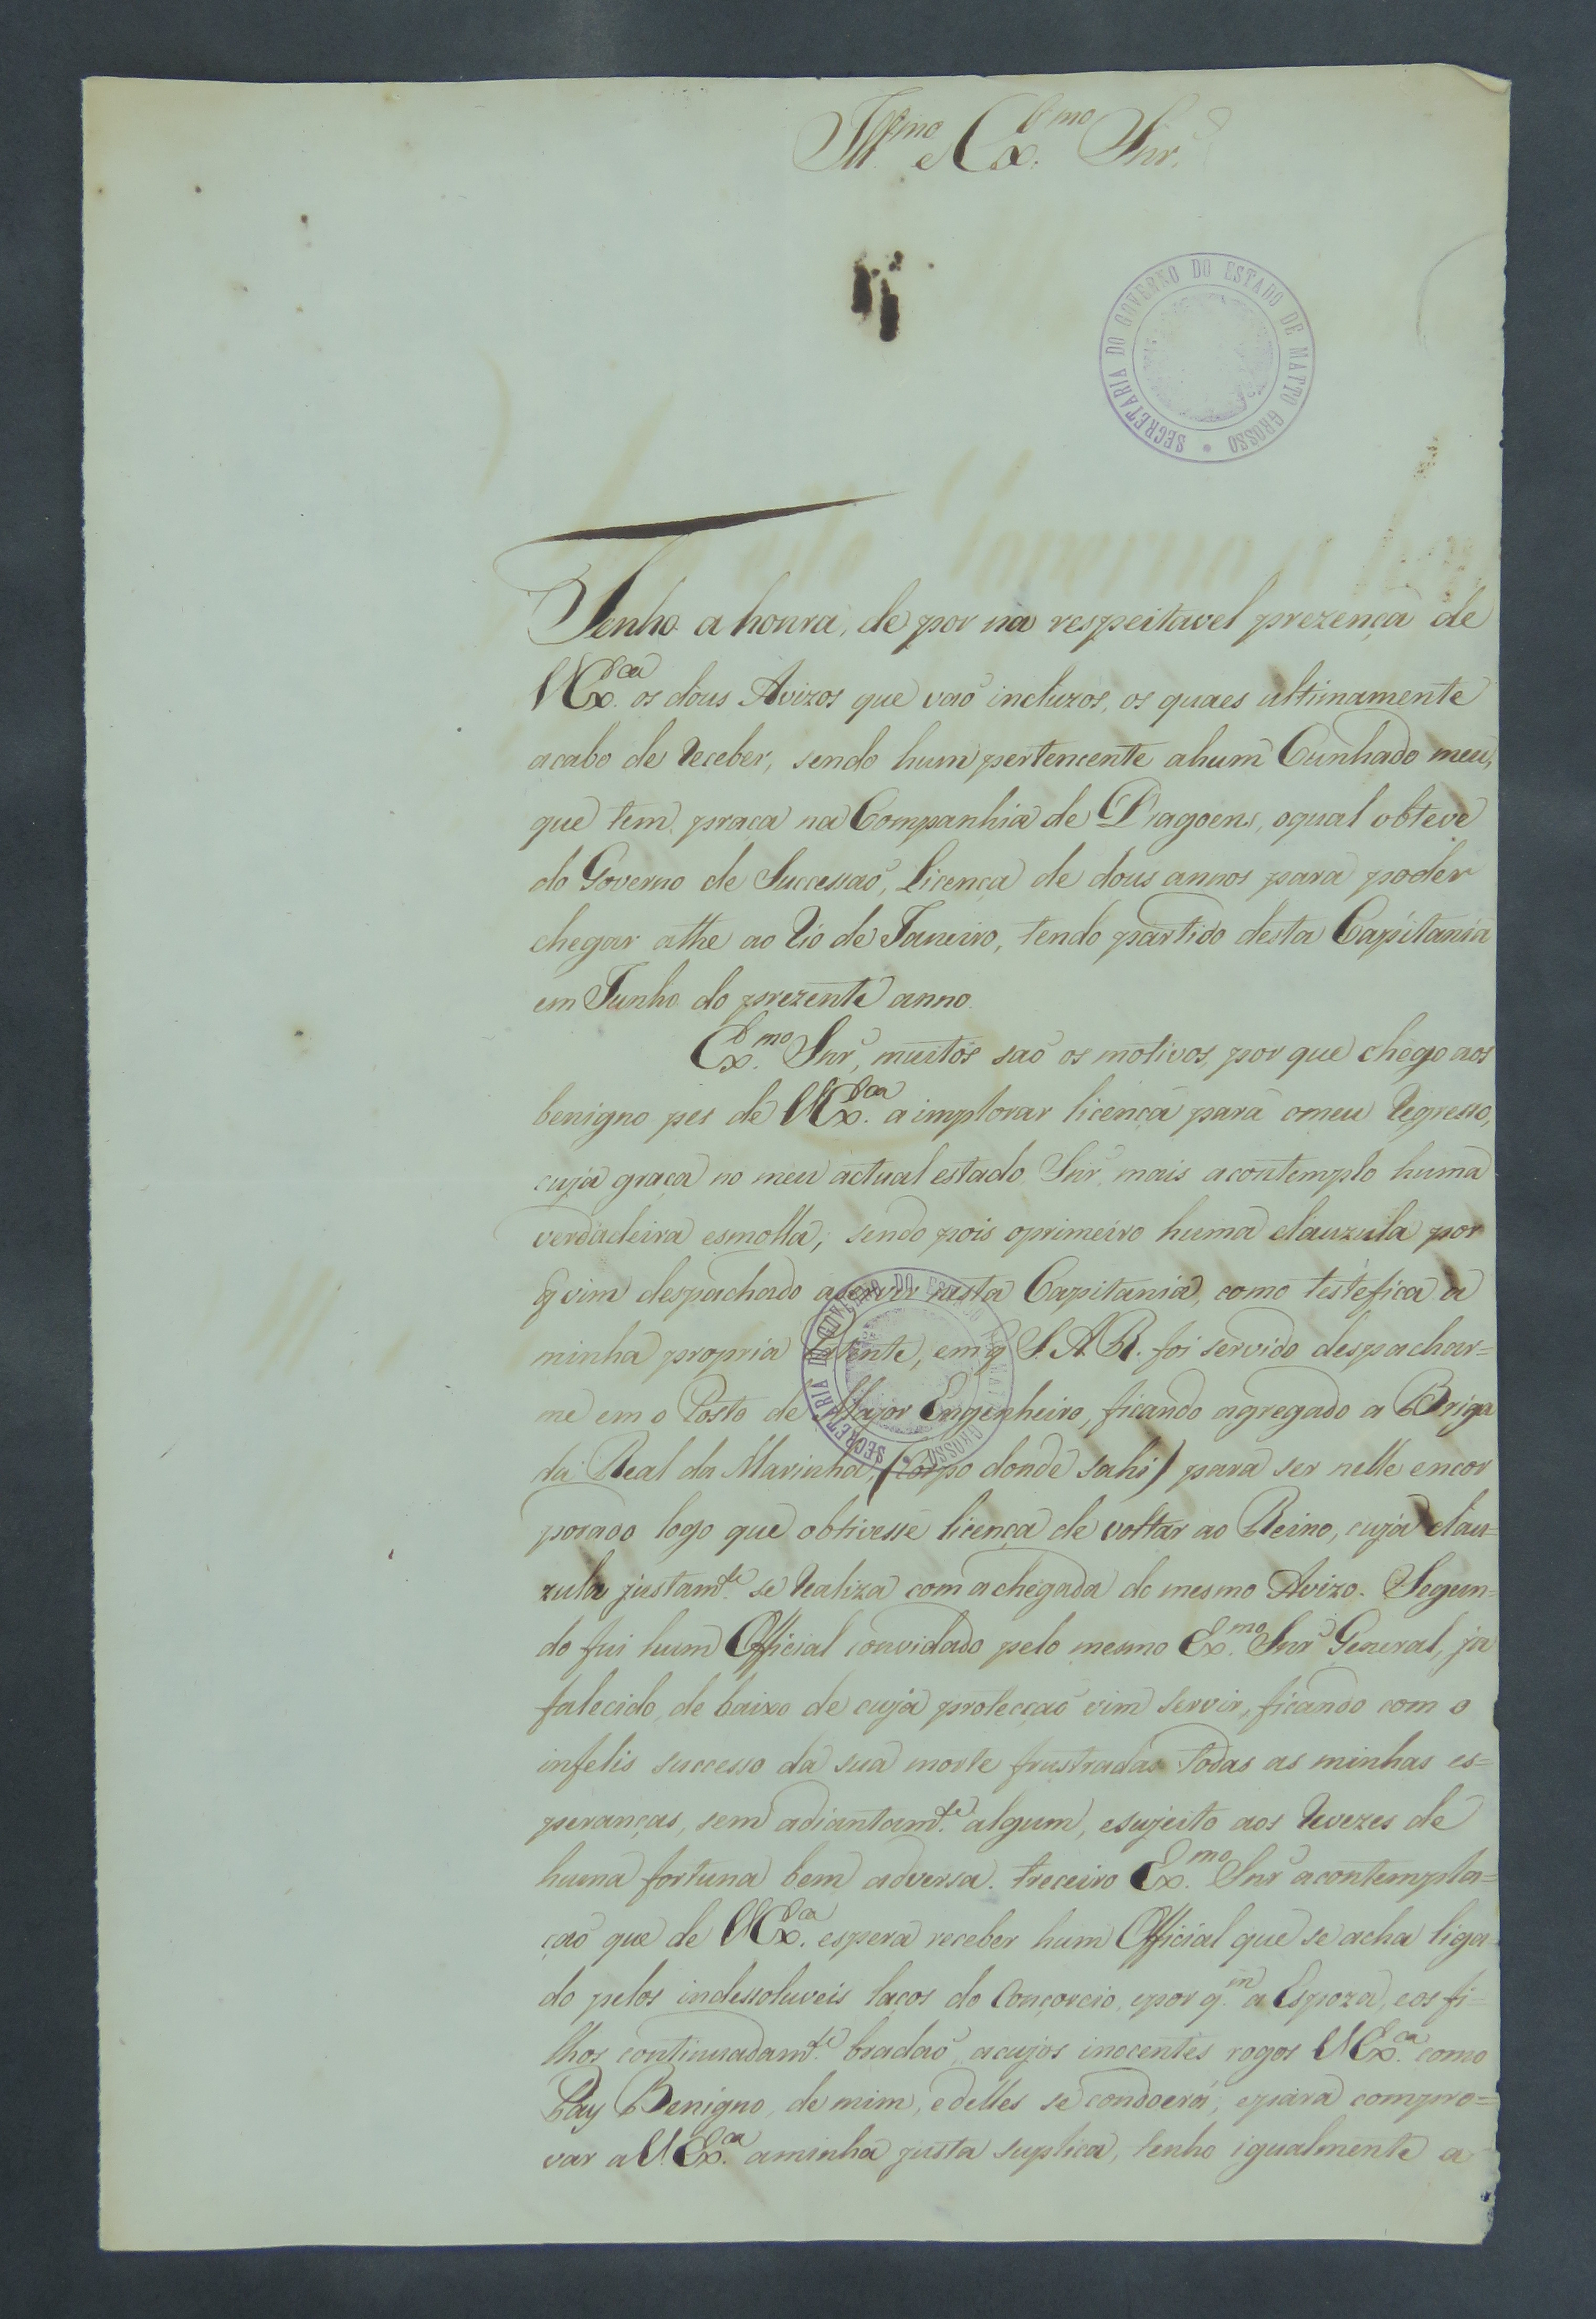 Ill.mo e Ex.mo Snr.
SECRETARIA DO GOVERNO DO ESTADO DE MATTO GROSSO
Tenho a honra, de por na respeitavel prezença de
V Ex.cia os dous Avizos que vaõ incluzos, os quaes ultimamente
acabo de Receber, sendo hum pertencente a hum Cunhado meu,
que tem praça na Companhia de Dragoens, o qual obteve
do Governo de Successaõ, Licença de dous annos para poder
chegar athe ao Rio de Janeiro, tendo partido desta Capitania
em Junho do prezente anno.
Ex.mo Snr, muitos saõ os motivos, por que chego aos
benigno pes de V Ex.cia a implorar licença para o meu Regresso,
cuja graça no meu actual estado Snr. mais a contemplo huma
verdadeira esmolla; sendo pois o primeiro huma clauzula por
q vim despachado a servir nesta Capitania, como testefica a
minha propria Patente, em q S. A. R. foi servido despachar=
me em o Posto de Major Engenheiro, ficando agregado a Briga
da Real da Marinha, (Corpo donde sahi) para ser nelle encor
porado logo que obtivesse licença de voltar ao Reino, cuja clau=
zula justam.te se Realiza com a chegada do mesmo Avizo. Segun=
do fui hum Official convidado pelo mesmo Ex.mo Snr General, ja
falecido, de baixo de cuja protecçaõ vim servir, ficando com o
infelis successo da sua morte frustradas todas as minhas es=
peranças, sem adiantam.te algum, e sujeito aos Revezes de
huma fortuna bem adversa. treceiro Ex.mo Snr a contempla=
çaõ que de V Ex.cia espera receber hum Official que se acha liga
do pelos indessoluveis laços do Conçorcio, e por q.m a Espoza, e os fi=
lhos continuadam.te bradaõ, a cujos inocentes rogos V Ex.ca como
Pay Benigno, de mim, e delles se condoerá; e para compro=
var a V. Ex.ca a minha justa suplica, tenho igualmente a
SECRETARIA DO GOVERNO DO ESTADO DE MATTO GROSSO